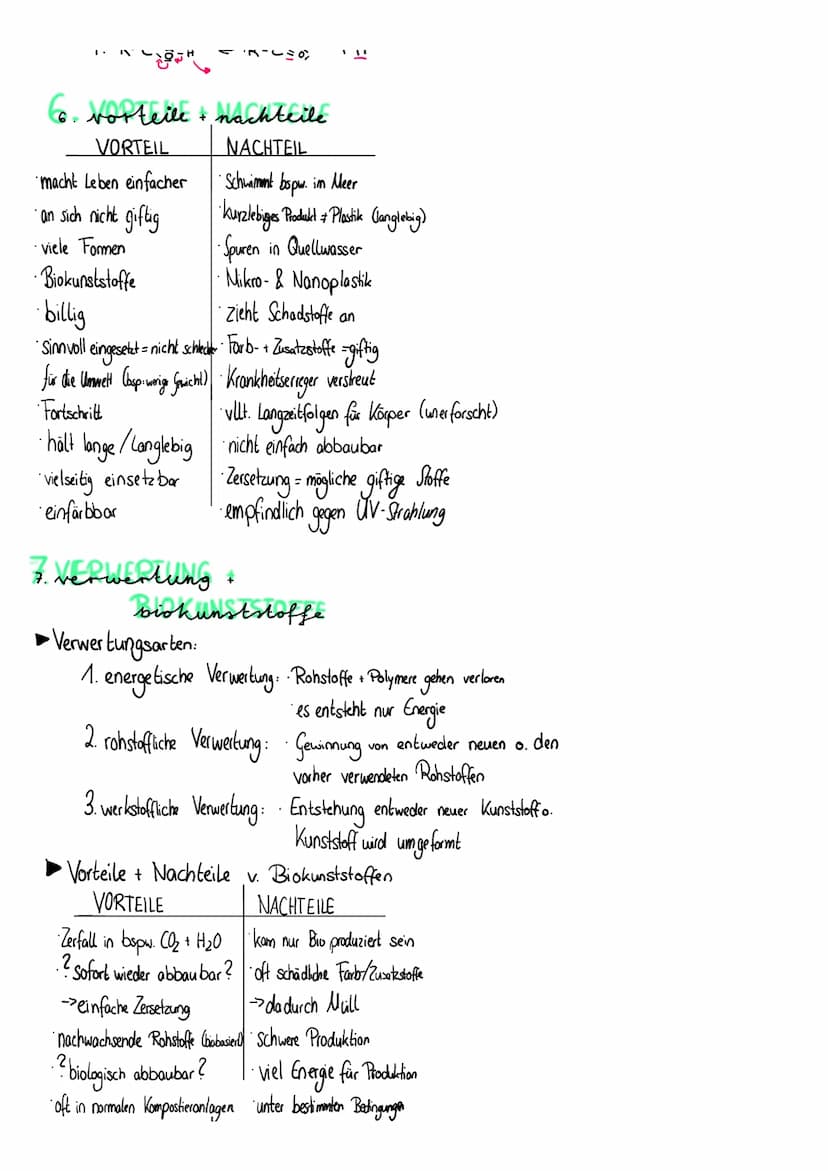 6. vorteile + nachteile
VORTEIL
NACHTEIL
· macht Leben einfacher
· Schwimmt bspw. im Meer
· an sich nicht giftig
· kurzlebiges Produkt ≠ Plastik (langlebig)
· viele Formen
· Spuren in Quellwasser
· Biokunststoffe
· Mikro- & Nanoplastik
· billig
· zieht Schadstoffe an
· sinnvoll eingesetzt = nicht schlecht
· Farb- + Zusatzstoffe = giftig
für die Umwelt (bsp: wenig Gewicht)
· Krankheitserreger verstreut
· Fortschritt
· vllt. Langzeitfolgen für Körper (unerforscht)
· hält lange / Langlebig
· nicht einfach abbaubar
· vielseitig einsetzbar
· Zersetzung = mögliche giftige Stoffe
· einfärbbar
· empfindlich gegen UV-Strahlung
7. verwertung +
biokunststoffe
► Verwertungsarten:
1. energetische Verwertung: · Rohstoffe + Polymere gehen verloren
· es entsteht nur Energie
2. rohstoffliche Verwertung: · Gewinnung von entweder neuen o. den
vorher verwendeten Rohstoffen
3. werkstoffliche Verwertung: · Entstehung entweder neuer Kunststoff o.
Kunststoff wird umgeformt
► Vorteile + Nachteile v. Biokunststoffen
VORTEILE
NACHTEILE
· Zerfall in bspw. CO₂ + H₂O
· kann nur Bio produziert sein
· ? Sofort wieder abbaubar?
· oft schädliche Farb/Zusatzstoffe
→ einfache Zersetzung
→ dadurch Müll
· nachwachsende Rohstoffe (biobasiert)
· schwere Produktion
· ? biologisch abbaubar?
· viel Energie für Produktion
· oft in normalen Kompostieranlagen
· unter bestimmten Bedingungen